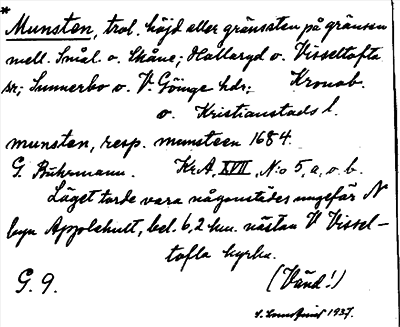 * Munsten, trol. höjd eller gränssten på gränsen
mell. Smål. o. Skåne; Hallaryd o. Visseltofta
sr; Sunnerbo o. V. Göinge hdr; Kronob.
o. Kristianstads l.
munsten, resp. munsteen 1684.
G. Buhrmann. Kr.A, XVII, N:o 5, a, o. b.
Läget torde vara någonstädes ungefär N
byn Applehult, bel. 6,2 km. nästan V Vissel-
tofta kyrka.
G. 9. (Vänd!)
1937.